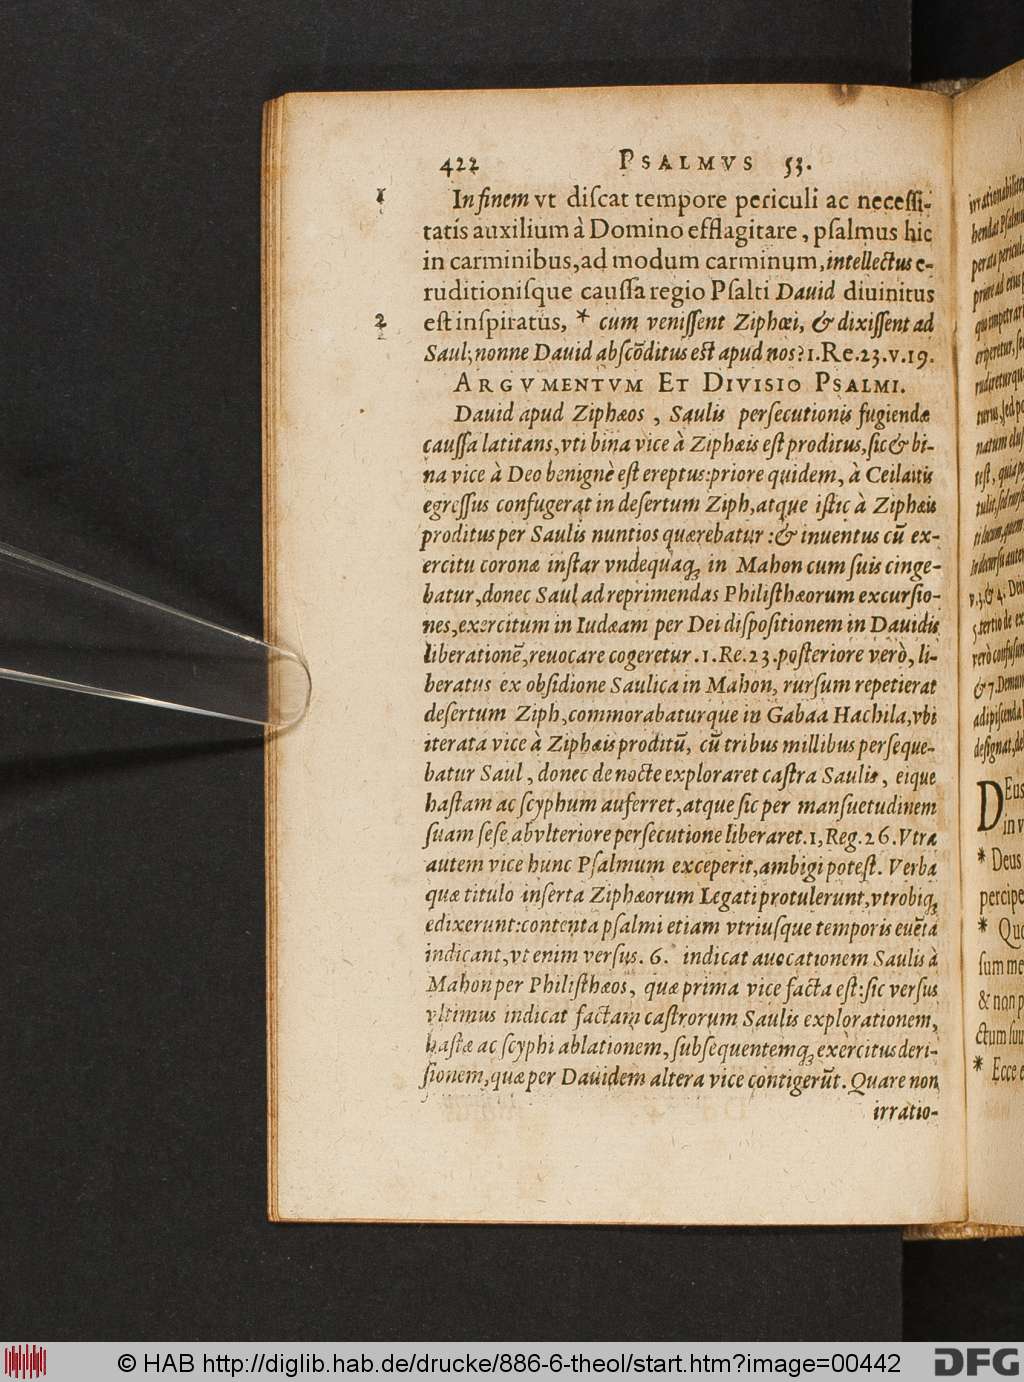 422 PSALMVS 53.
1 In finem vt discat tempore periculi ac necessi-
tatis auxilium à Domino efflagitare, psalmus hic
in carminibus, ad modum carminum, intellectus e-
ruditionisque caussa regio Psalti Dauid diuinitus
2 est inspiratus, * cum venissent Ziphæi, & dixissent ad
Saul; nonne Dauid abscõditus est apud nos? 1. Re. 23. v. 19.
ARGVMENTVM ET DIVISIO PSALMI.
Dauid apud Ziphæos, Saulis persecutionis fugiendæ
caussa latitans, vti bina vice à Ziphæis est proditus, sic & bi-
na vice à Deo benignè est ereptus: priore quidem, à Ceilaitis
egressus confugerat in desertum Ziph, atque istic à Ziphæis
proditus per Saulis nuntios quærebatur: & inuentus cũ ex-
ercitu coronæ instar vndequaq; in Mahon cum suis cinge-
batur, donec Saul ad reprimendas Philisthæorum excursio-
nes, exercitum in Iudæam per Dei dispositionem in Dauidis
liberationẽ, reuocare cogeretur. 1. Re. 23. posteriore verò, li-
beratus ex obsidione Saulica in Mahon, rursum repetierat
desertum Ziph, commorabaturque in Gabaa Hachila, vbi
iterata vice à Ziphæis proditũ, cũ tribus millibus perseque-
batur Saul, donec de nocte exploraret castra Saulis, eique
hastam ac scyphum auferret, atque sic per mansuetudinem
suam sese ab vlteriore persecutione liberaret. 1, Reg. 26. Vtra
autem vice hunc Psalmum exceperit, ambigi potest. Verba
quæ titulo inserta Ziphæorum Legati protulerunt, vtrobiq;
edixerunt: contenta psalmi etiam vtriusque temporis euẽta
indicant, vt enim versus. 6. indicat auocationem Saulis à
Mahon per Philisthæos, quæ prima vice facta est: sic versus
vltimus indicat factam castrorum Saulis explorationem,
hastæ ac scyphi ablationem, subsequentemq; exercitus deri-
sionem, quæ per Dauidem altera vice contigerũt. Quare non
irratio-
irrationabiliter
hendat Psalmu
perata pericula
priore ad eius p
quo impetrari
eriperetur, se
rudireturqu
turus, sed po
natum elus
test, quia p
tulit, sed
ti locum, quem
In decursu autem
v. 3. & 4. Deu
5. tertio de ex
verò confusion
& 7. Demum
adipiscenda l
designat, de
DEus
in v
* Deus
percipe
* Quo
sum me
& non p
ctum suu
* Ecce e
© HAB http://diglib.hab.de/drucke/886-6-theol/start.htm?image=00442 DFG